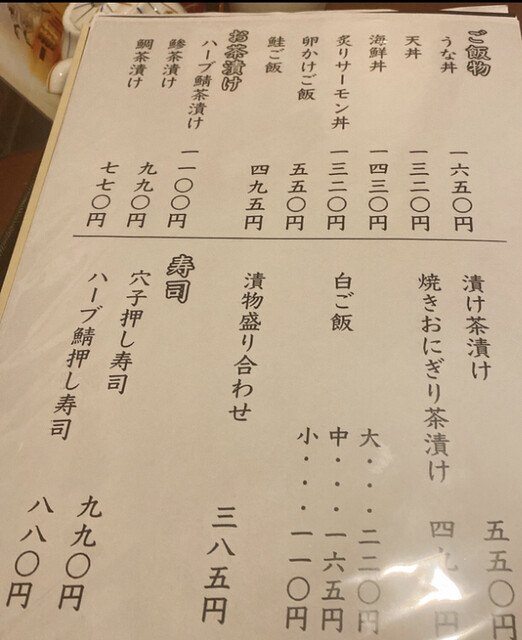 ご飯物
うな丼 一六五〇円
天丼 一三二〇円
海鮮丼 一四三〇円
炙りサーモン丼 一三二〇円
卵かけご飯 五五〇円
鮭ご飯 四九五円
お茶漬け
ハーブ鯖茶漬け 一一〇〇円
鯵茶漬け 九九〇円
鯛茶漬け 七七〇円
漬け茶漬け 五五〇円
焼きおにぎり茶漬け
白ご飯 大・・・二二〇円
中・・・一六五円
小・・・一一〇円
漬物盛り合わせ 三八五円
寿司
穴子押し寿司 九九〇円
ハーブ鯖押し寿司 八八〇円